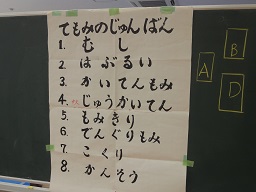 てもみのじゅんばん
1. むし
2. はぶるい
3. かいてんもみ
4. じゅうかいてん
5. もみきり
6. でんぐりもみ
7. こくり
8. かんそう
A
B
D